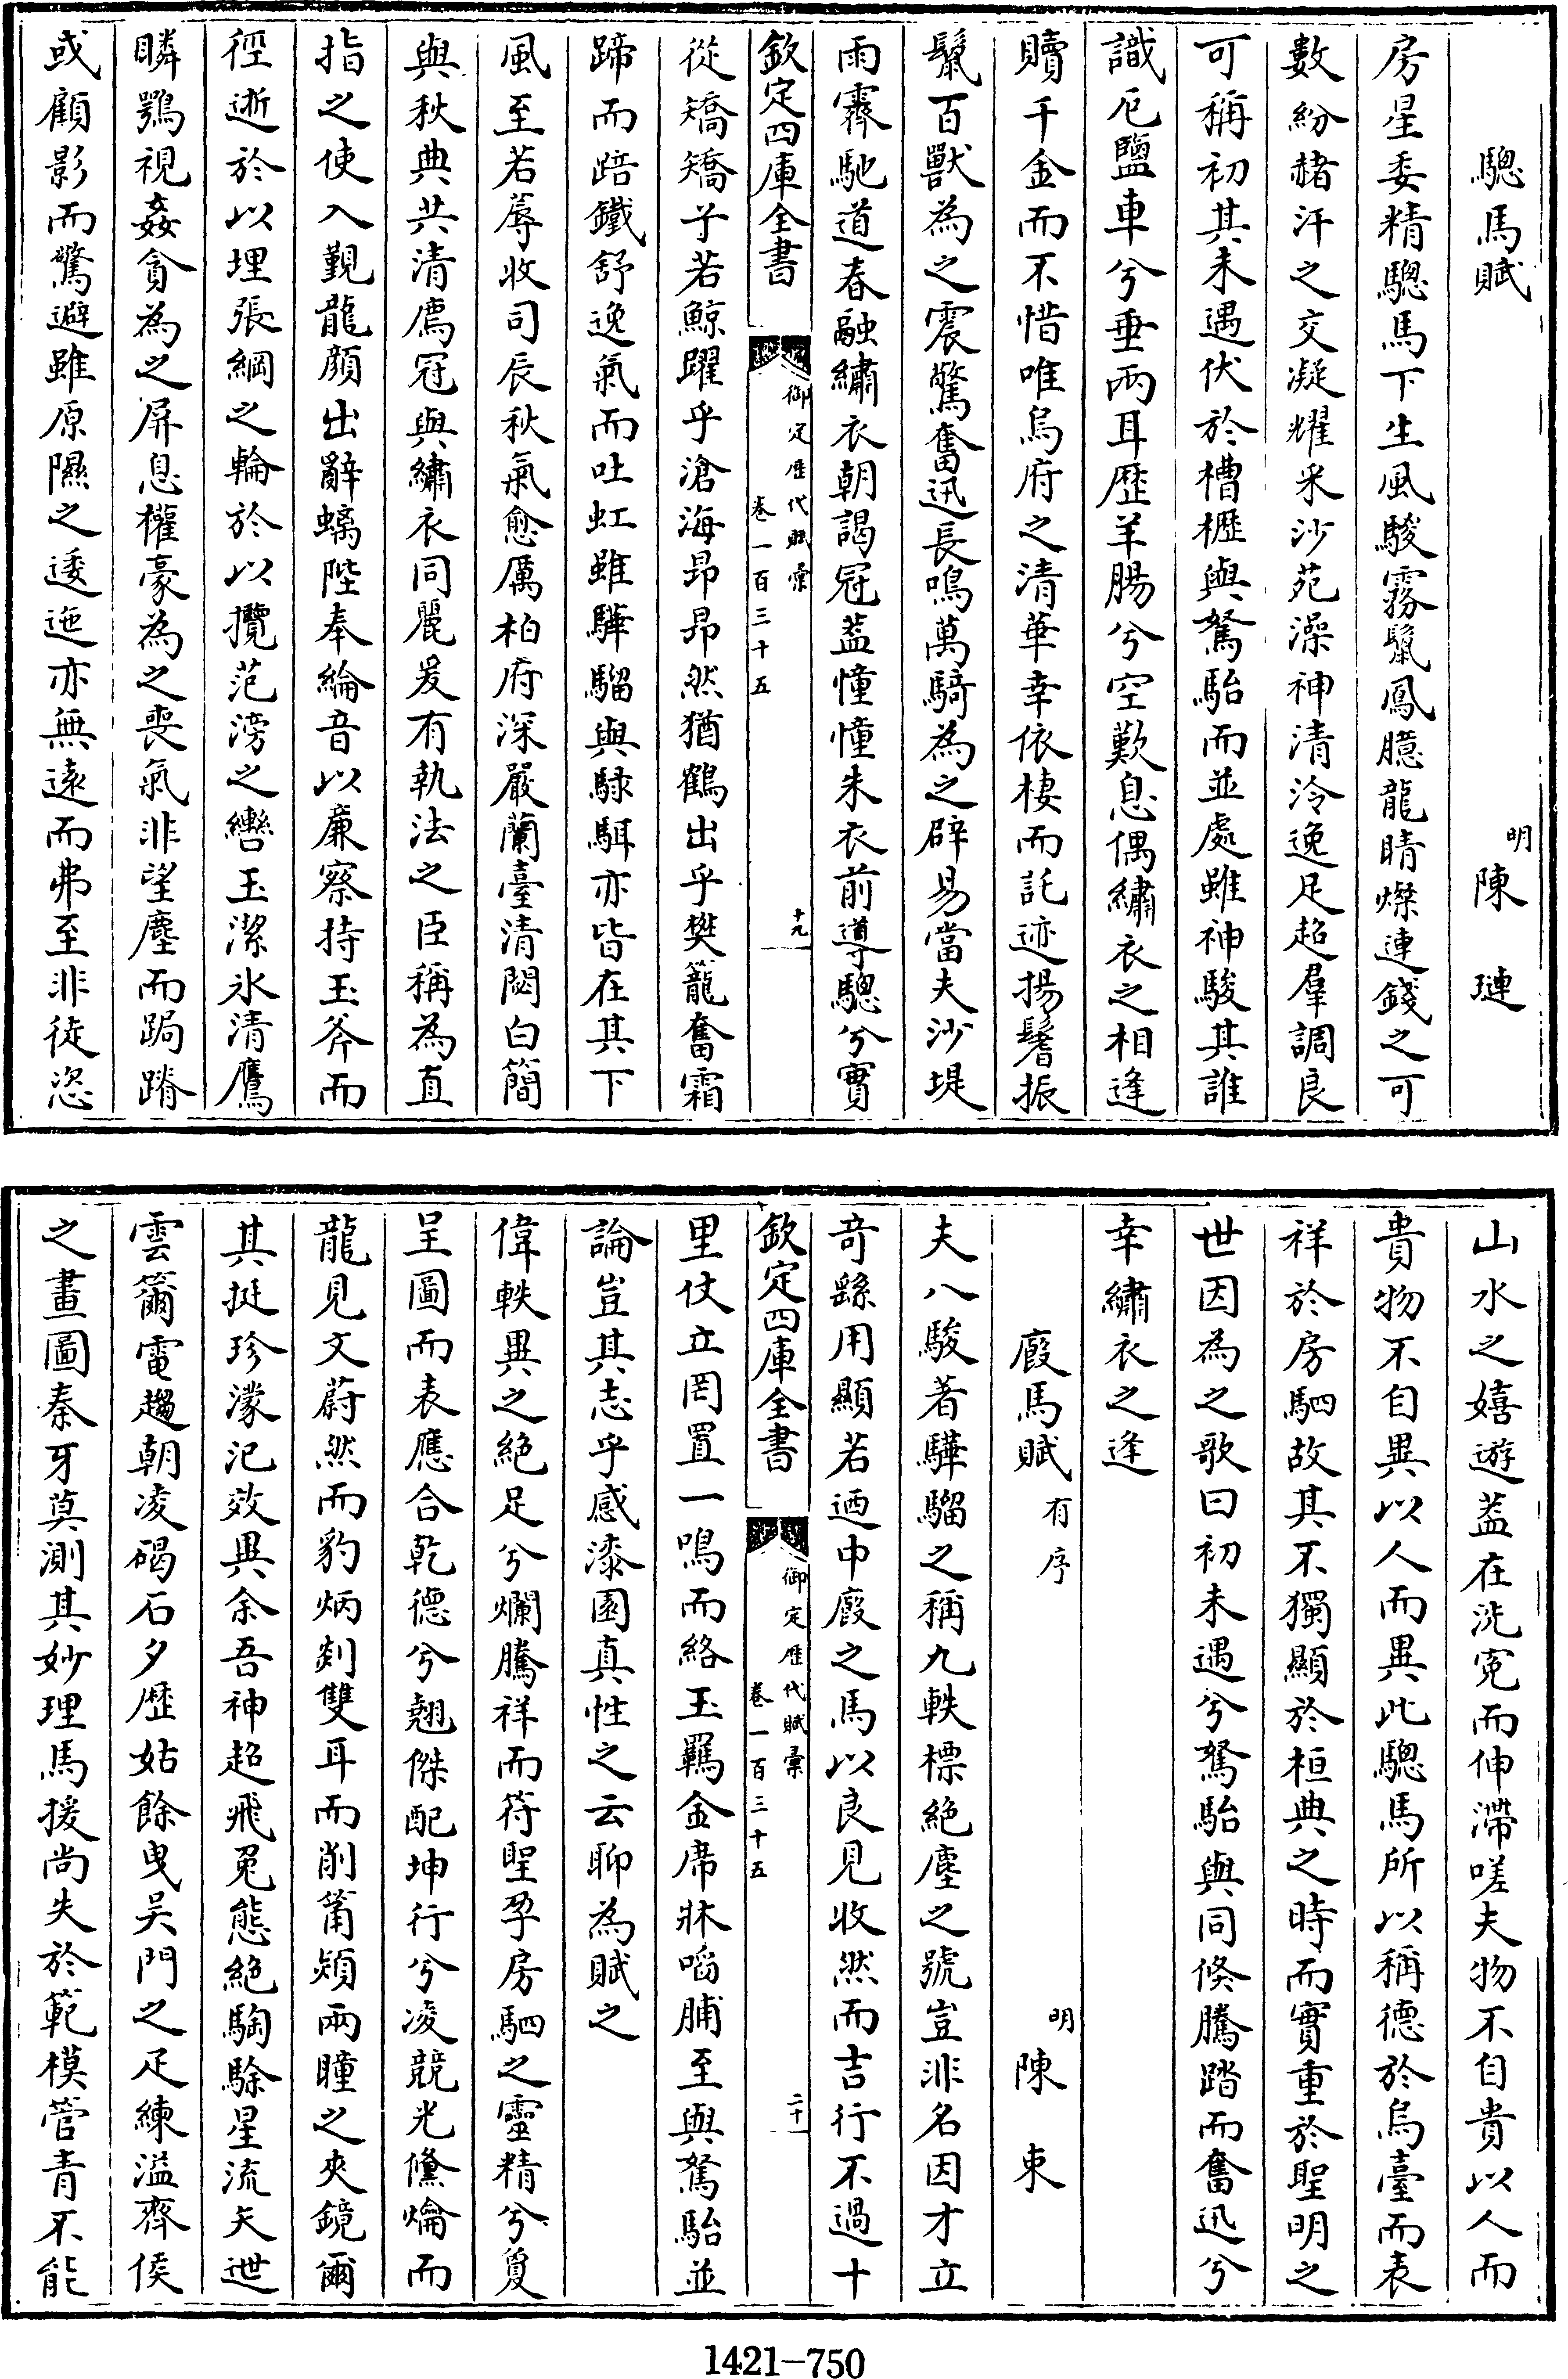 驄馬賦　明陳璉
房星委精驄馬下生風駿霧鬛鳳臆龍睛燦連錢之可
數紛赭汗之交凝耀米沙苑澡神清泠逸足超羣調良
可稱初其未遇伏於槽櫪與駑駘而並處雖神駿其誰
識厄鹽車兮垂兩耳歴羊腸兮空歎息偶繡衣之相逢
贖千金而不惜唯烏府之清華幸依棲而託迹揚鬐振
鬛百獸為之震驚奮迅長鳴萬騎為之辟易當夫沙堤
雨霽馳道春融繡衣朝謁冠葢憧憧朱衣前導驄兮實
欽定四庫全書　御定歴代賦彙　卷一百三十五　十九
從矯矯乎若鯨躍乎滄海昂昂然猶鶴出乎樊籠奮霜
蹄而踣鐵舒逸氣而吐虹雖驊騮與騄駬亦皆在其下
風至若蓐收司辰秋氣愈厲柏府深嚴蘭臺清閟白簡
與秋典共清廌冠與繡衣同麗爰有執法之臣稱為直
指之使入覲龍顔出辭螭陛奉綸音以亷察持玉斧而
徑逝於以埋張綱之輪於以攬范滂之轡玉潔氷清鷹
瞵鶚視姦貪為之屏息權豪為之喪氣非望塵而跼蹐
或顧影而驚避雖原隰之逶迤亦無遠而弗至非徒恣
山水之嬉遊葢在洗寃而伸滯嗟夫物不自貴以人而
貴物不自異以人而異此驄馬所以稱德於烏臺而表
祥於房駟故其不獨顯於桓典之時而實重於聖明之
世因為之歌曰初未遇兮駑駘與同倏騰踏而奮迅兮
幸繡衣之逢
廏馬賦有序　明陳東
夫八駿著驊騮之稱九軼標絶塵之號豈非名因才立
奇繇用顯若迺中廏之馬以良見收然而吉行不過十
欽定四庫全書　御定歴代賦彙　卷一百三十五　二十
里仗立罔置一鳴而絡玉羈金席牀啗脯至與駑駘並
論豈其志乎感漆園真性之云聊為賦之
偉軼異之絶足兮爛騰祥而符聖孕房駟之靈精兮夐
呈圖而表應合乾德兮翹傑配坤行兮凌競光儵爚而
龍見文蔚然而豹炳剡雙耳而削箾熲兩瞳之夾鏡爾
其挺珍濛汜效異余吾神超飛兔態絶騊駼星流矢迸
雲籋電趨朝凌碣石夕歴姑餘曳吴門之疋練溢齊侯
之畫圖秦牙莫測其妙理馬援尚失於範模菅青不能
1421-750